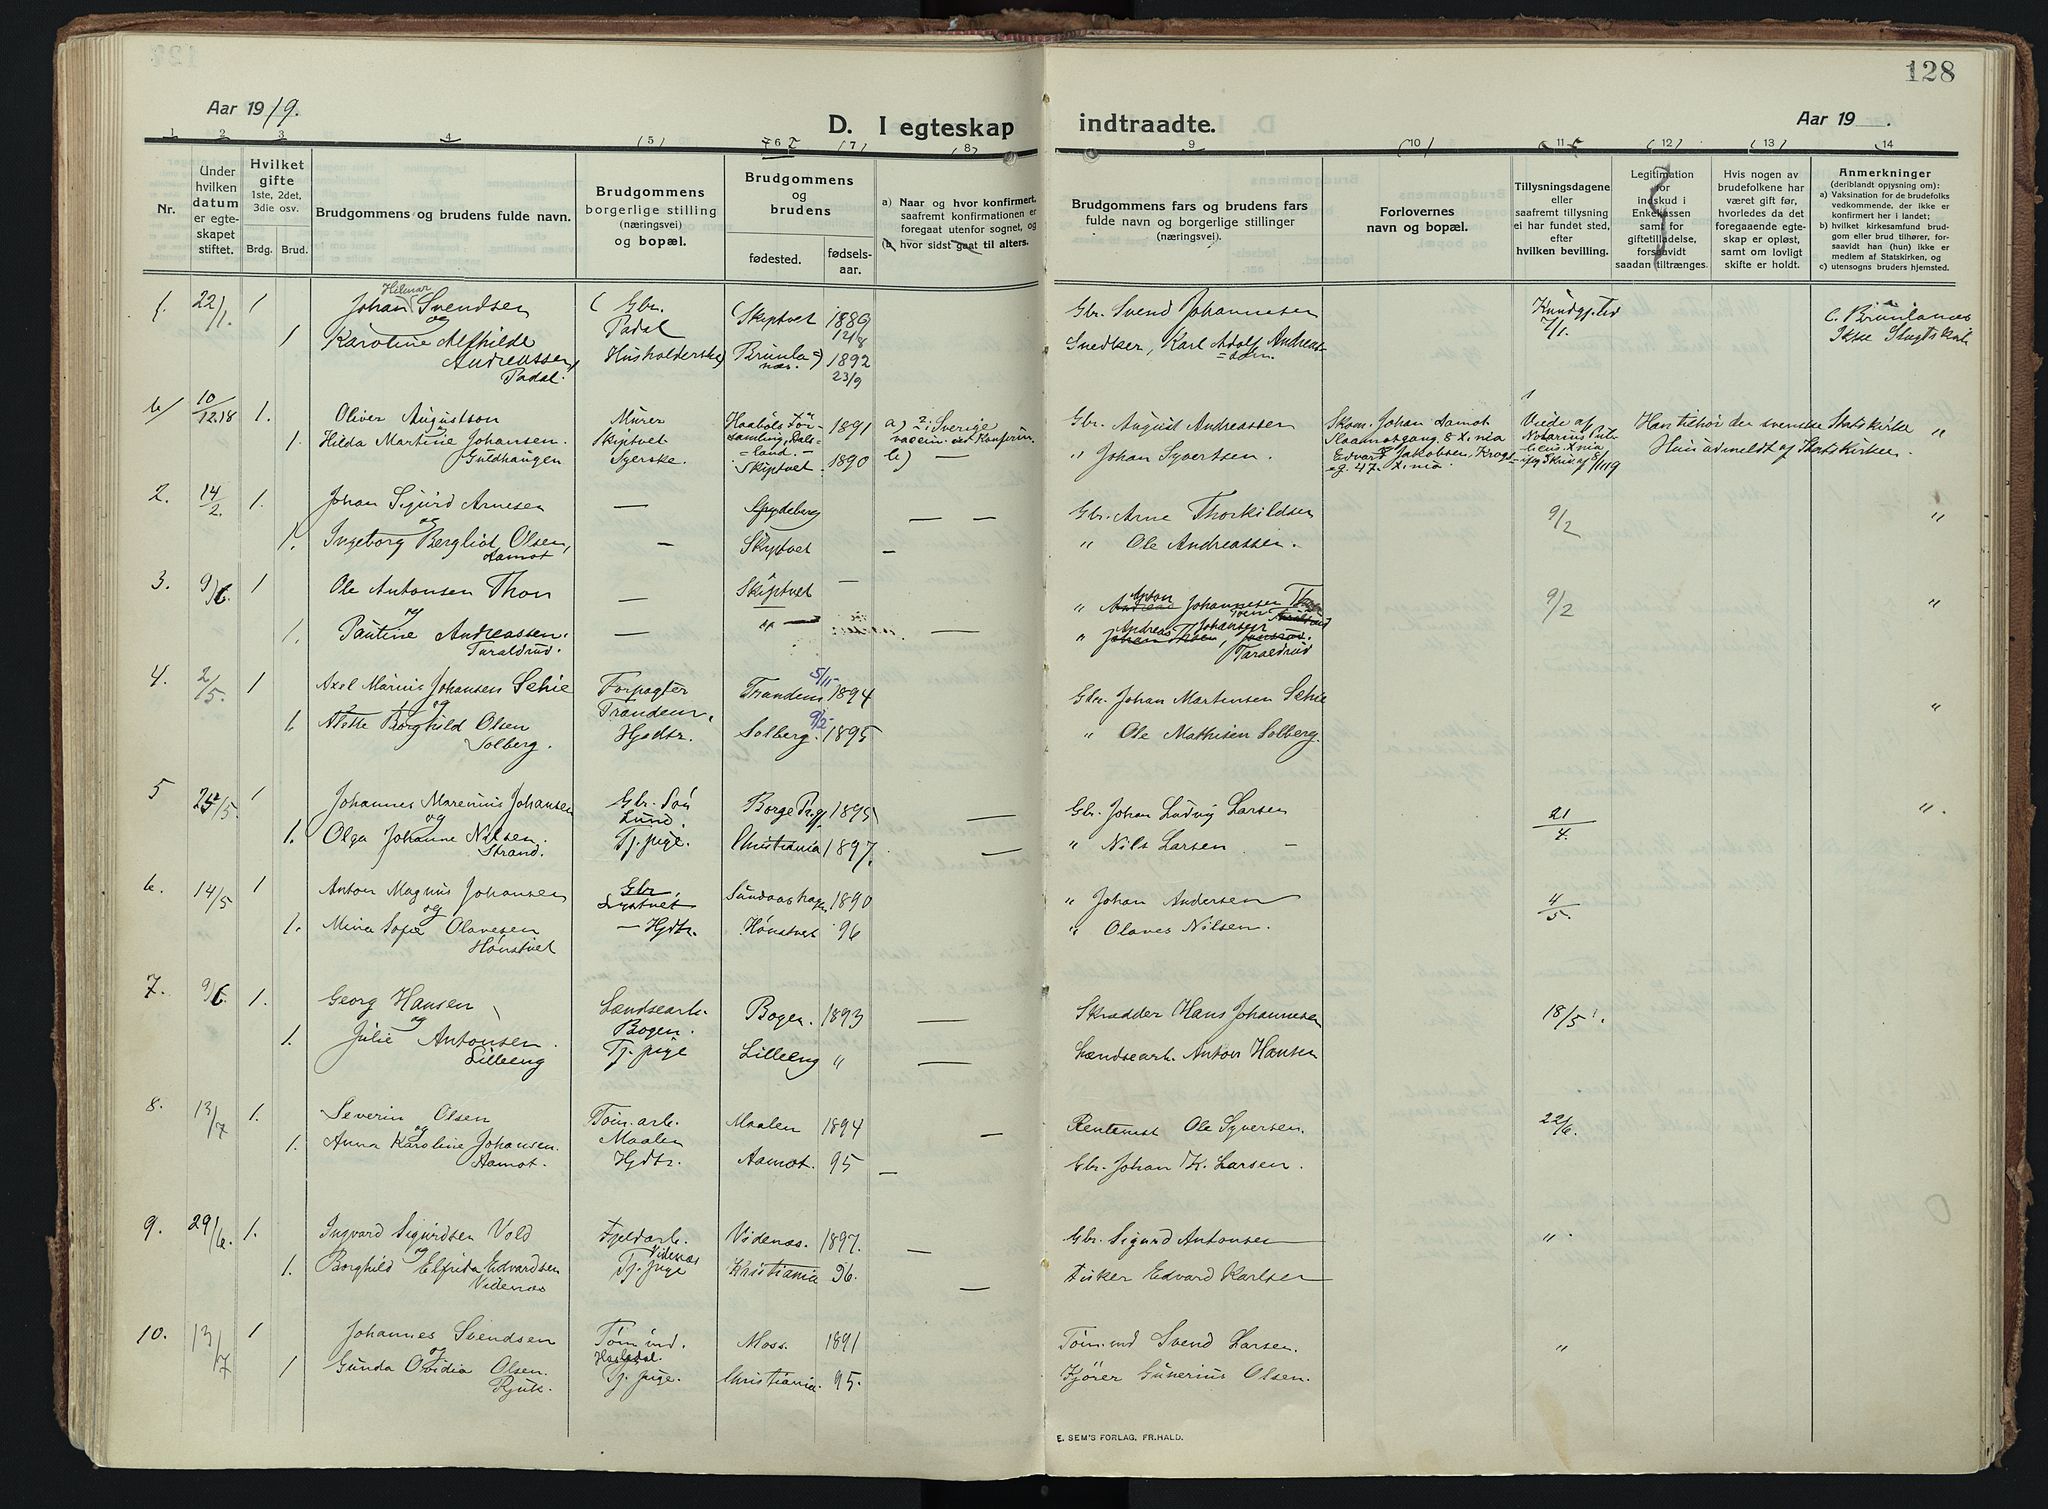 128
Aar 1919.
D. I egteskap indtraadte.
Aar 19 .
1 2 3 4 (5) 6 (7) (8) 9 (10) 11 (12) (13) 14
Nr.
Under hvilken datum er egteskapet stiftet.
Hvilket gifte 1ste, 2det, 3die osv.
Brdg. Brud.
Brudgommens og brudens fulde navn.
Brudgommens borgerlige stilling (næringsvei) og bopæl.
Brudgommens og brudens
fødested. fødselsaar.
a) Naar og hvor konfirmert, saafremt konfirmationen er foregaat utenfor sognet, og
b) hvor sidst gaat til alters.
Brudgommens fars og brudens fars fulde navn og borgerlige stillinger (næringsvei).
Forlovernes navn og bopæl.
Tillysningsdagene eller saafremt tillysning ei har fundet sted, efter hvilken bevilling.
Legitimation for indskud i Enkekassen samt for giftetilladelse, forsaavidt saadan tiltrænges.
Hvis nogen av brudefolkene har været gift før, hvorledes da det foregaaende egteskap er opløst, samt om lovligt skifte er holdt.
Anmerkninger (deriblandt opysning om): a) Vaksination for de brudefolks vedkommende, der ikke er konfirmert her i landet; b) hvilket kirkesamfund brudgom eller brud tilhører, forsaavidt han (hun) ikke er medlem af Statskirken, og c) utensogns bruders hjemsted.
1. 22/1. 1 Johan Hilmar Svendsen Gbr. Padal Skiptvet 1889 12/8 Gbr. Svend Johannesen 7/1. c. Brunlanes
og
1 Karoline Alfhilde Andreassen, Padal. Husholderske Brunlanæs. 1892 23/9 Snedker, Karl Adolf Andreassen Ikke
10/12.18 1. Oliver Augustson Murer 1891 a) Sverige Gbr. August Andreassen Skom. Johan Aamot Viede af Han tilhør den svenske Statskirke "
1. Hilda Martine Johansen Guldhaugen Skiptvet Syerske. Skiptvet. 1890 b) — " Johan Syvertsen. Edvard Jakobsen, Notarius Hun udmeldt af Statskirken.
2. 14/2. 1. Johan Sigurd Arnesen — Spydeberg — — Gbr. Arne Thorkildsen 9/2 "
og
1. Ingeborg Bergliot Olsen, Aamot — Skiptvet — " Ole Andreassen.
3. 9/6. 1 Ole Antonsen Thon — Skiptvet — " Anton Johannesen 9/2 "
og
1. Pauline Andreassen. Taraldrud. — " — " Andreas Johansen Taraldrud
4. 2/5. 1 Axel Marius Johansen Schie Forpagter Trandem 5/11 1894 Gbr. Johan Martinsen Schie "
og Trandem,
1. Alette Borghild Olsen Solberg. Hjdtr. Solberg. 9/5 1895 " Ole Mathisen Solberg.
5 25/5. 1 Johannes Marenius Johansen Gbr. Søn Lund. Borge 1895 — Gbr. Johan Ludvig Larsen 21/4. ".
og
1. Olga Johanne Nilsen. Strand. Tj. pige. Christiania 1897. — " Nils Larsen —
6. 14/5 1 Anton Magnus Johansen Gbr. 1890 " Johan Andersen 4/5.
og
1. Mina Sofie Olavesen Hønstvet — Hjdtr. Hønstvet 96 " Olaves Nilsen.
7. 9/6. 1. Georg Hansen Lændsearb. Bogen. Bogen. 1893 — Skrædder Hans Johannesen 18/5.
og
1. Julie Antonsen. Lilleeng Tj. pige Lilleeng " — Lændsearb. Anton Hansen
8. 13/7 1. Severin Olsen Tøm. arb. Maalen Maalen 1894 — Rentenist Ole Syversen. 22/6.
og
1. Anna Karoline Johansen. Aamot. Hjdtr. Aamot. 95 — Gbr. Johan K. Larsen.
9. 29/6. 1. Ingvard Sigurdsen Vold Fjeldarb. Videnæs Videnæs. 1897. — Gbr. Sigurd Antonsen ".
og
1. Borghild Elfrida Edvardsen Videnæs Tj. pige Kristiania 96. — Fisker Edvard Karlsen
10. 13/7 1 Johannes Svendsen Tøm. md. Moss. 1891 Tøm. md Svend Larsen. "
og
1 Gunda Ovidia Olsen. Rjuk. Tj. pige. Christiania. 95. Kjører Gunerius Olsen.
E. SEM'S FORLAG, FR.HALD.